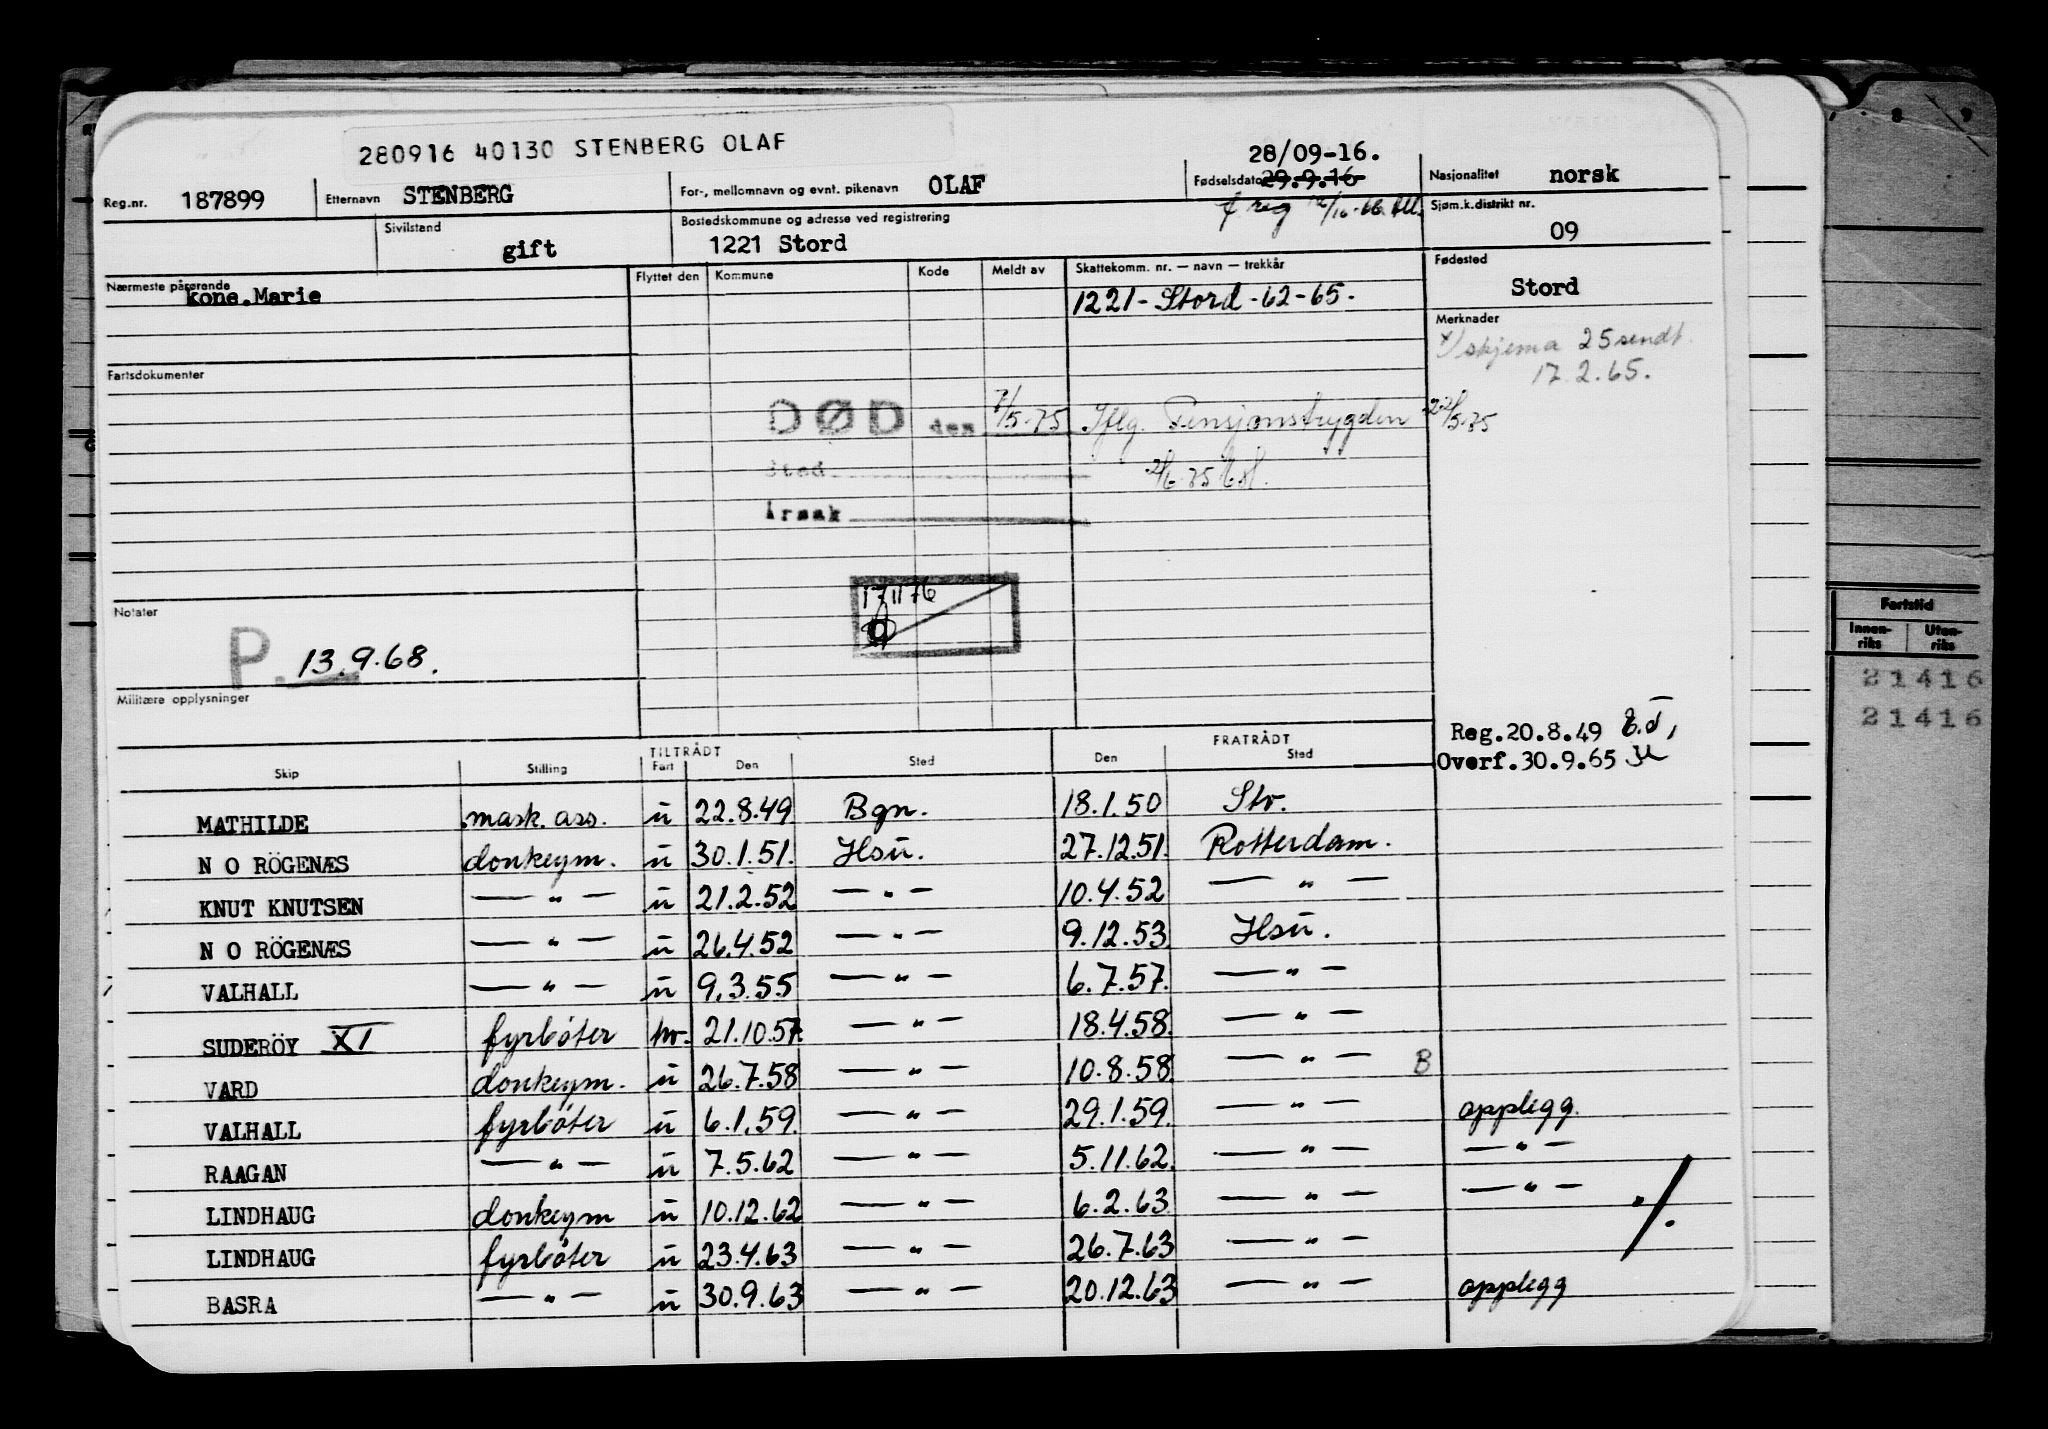 280916 40130 STENBERG OLAF
Reg.nr. 187899 Etternavn STENBERG For-, mellomnavn og evnt. pikenavn OLAF Fødselsdato 29.9.16 28/09-16. Nasjonalitet norsk
f reg 12/10-66
Sivilstand gift Bostedskommune og adresse ved registrering 1221 Stord Sjøm.k.distrikt nr. 09
Nærmeste pårørende kone.Marie Flyttet den Kommune Kode Meldt av Skattekomm. nr. — navn — trekkår Fødested Stord
1221 - Stord - 62 - 65.
Merknader
x/ skjema 25 sendt
17.2.65.
Fartsdokumenter
DØD den 7/5-75 Iflg. Pensjonstrygden 22/5-75
Sted 2/6.75
Årsak
17/11 76
Notater
P. 13.9.68.
Militære opplysninger
Reg.20.8.49
Overf.30.9.65
TILTRÅDT FRATRÅDT
Skip Stilling Fart Den Sted Den Sted
MATHILDE mask. ass. u 22.8.49 Bgn. 18.1.50 Stv.
N O RÖGENÆS donkeym. u 30.1.51. Hsu. 27.12.51. Rotterdam.
KNUT KNUTSEN — " — u 21.2.52 — " — 10.4.52 — " —
N O RÖGENÆS — " — u 26.4.52 — " — 9.12.53 Hsu.
VALHALL — " — u 9.3.55 — " — 6.7.57. — " —
SUDERÖY XI fyrbøter hv. 21.10.57. — " — 18.4.58. — " —
VARD donkeym. u 26.7.58 — " — 10.8.58. — " — B
VALHALL fyrbøter u 6.1.59. — " — 29.1.59. — " — opplegg.
RAAGAN — " — u 7.5.62 — " — 5.11.62. — " — — " —
LINDHAUG donkeym u 10.12.62 — " — 6.2.63 — " — — " — ./.
LINDHAUG fyrbøter u 23.4.63 — " — 26.7.63 — " —
BASRA — " — u 30.9.63 — " — 20.12.63 — " — opplegg
8 9
Fartstid
Innen-riks Uten-riks
21416
21416